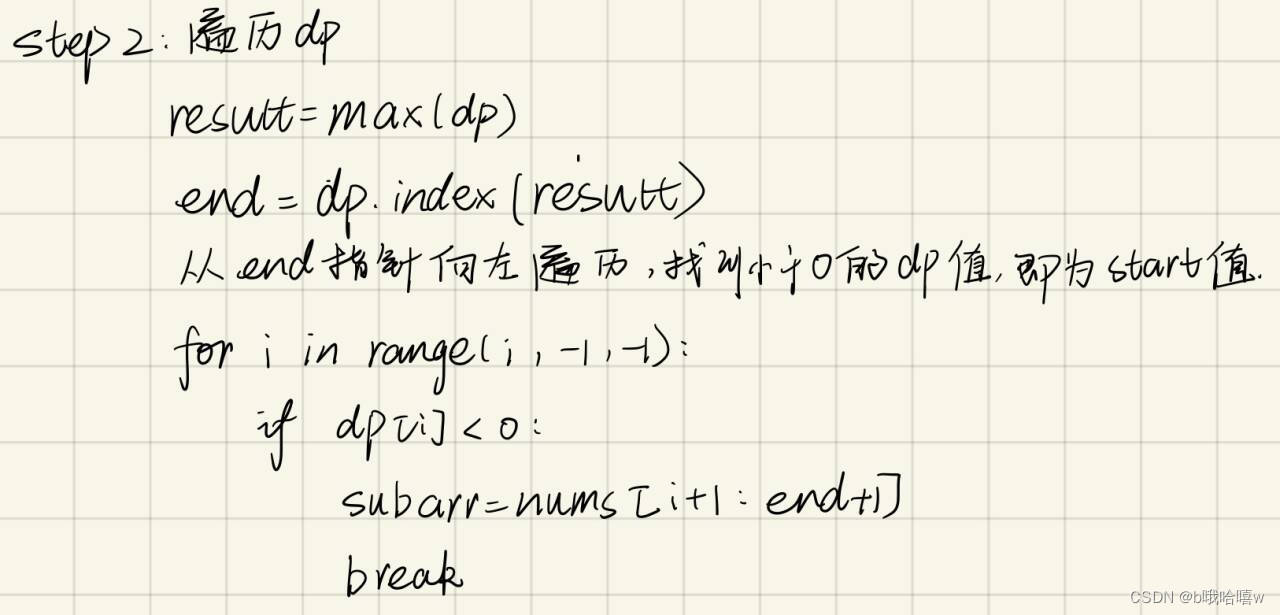 step 2: 遍历 dp
result=max(dp)
end = dp.index(result)
从 end 指针向左遍历,找到小于0的dp值,即为start值.
for i in range(i, -1, -1):
if dp[i] < 0:
subarr=nums[i+1: end+1]
break
CSDN @b哦哈嘻w